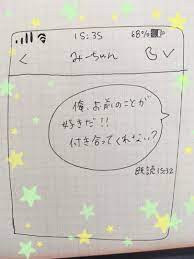 15:35 68%
< みーちゃん
俺、お前のことが
好きだ!!
付き合ってくれない?
既読15:32